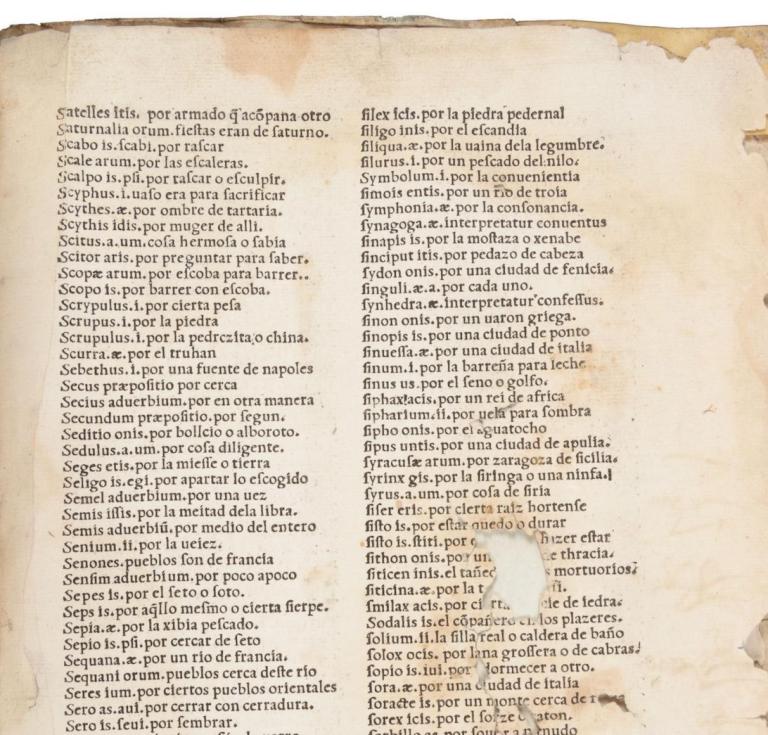 Satelles itis. por armado q̃ acõpana otro
Saturnalia orum. fiestas eran de saturno.
Scabo is. scabi. por rascar
Scale arum. por las escaleras.
Scalpo is. psi. por rascar o esculpir.
Scyphus. i. uaso era para sacrificar
Scythes. æ. por ombre de tartaria.
Scythis idis. por muger de alli.
Scitus. a. um. cosa hermosa o sabia
Scitor aris. por preguntar para saber.
Scopæ arum. por escoba para barrer..
Scopo is. por barrer con escoba.
Scrypulus. i. por cierta pesa
Scrupus. i. por la piedra
Scrupulus. i. por la pedrczita, o china.
Scurra. æ. por el truhan
Sebethus. i. por una fuente de napoles
Secus præpositio por cerca
Secius aduerbium. por en otra manera
Secundum præpositio. por segun.
Seditio onis. por bollcio o alboroto.
Sedulus. a. um. por cosa diligente.
Seges etis. por la miesse o tierra
Seligo is. egi. por apartar lo escogido
Semel aduerbium. por una uez
Semis issis. por la meitad dela libra.
Semis aduerbiũ. por medio del entero
Senium. ii. por la ueiez.
Senones. pueblos son de francia
Sensim aduerbium. por poco apoco
Sepes is. por el seto o soto.
Seps is. por aq̃llo mesmo o cierta sierpe.
Sepia. æ. por la xibia pescado.
Sepio is. psi. por cercar de seto
Sequana. æ. por un rio de francia.
Sequani orum. pueblos cerca deste rio
Seres ium. por ciertos pueblos orientales
Sero as. aui. por cerrar con cerradura.
Sero is. seui. por sembrar.
silex icis. por la piedra pedernal
siligo inis. por el escandia
siliqua. æ. por la uaina dela legumbre.
silurus. i. por un pescado del nilo.
Symbolum. i. por la conuenientia
simois entis. por un rio de troia
symphonia. æ. por la consonancia.
synagoga. æ. interpretatur conuentus
sinapis is. por la mostaza o xenabe
sinciput itis. por pedazo de cabeza
sydon onis. por una ciudad de fenicia.
singuli. æ. a. por cada uno.
synhedra. æ. interpretatur confessus.
sinon onis. por un uaron griega.
sinopis is. por una ciudad de ponto
sinuessa. æ. por una ciudad de italia
sinum. i. por la barreña para leche
sinus us. por el seno o golfo.
siphax acis. por un rei de africa
sipharium. ii. por uela para sombra
sipho onis. por el aguatocho
sipus untis. por una ciudad de apulia.
syracusæ arum. por zaragoza de sicilia.
syrinx gis. por la siringa o una ninfa.
syrus. a. um. por cosa de siria
siser eris. por cierta raiz hortense
sisto is. por estar quedo o durar
sisto is. stiti. por hazer estar
sithon onis. por un thracia.
siticen inis. el mortuorios.
siticina. æ. por la
smilax acis. por de iedra.
Sodalis is. el cõpañero en los plazeres.
solium. ii. la silla real o caldera de baño
solox ocis. por lana grossera o de cabras.
sopio is. iui. por adormecer a otro.
sora. æ. por una ciudad de italia
soracte is. por un monte cerca de
sorex icis. por el sorze o raton.